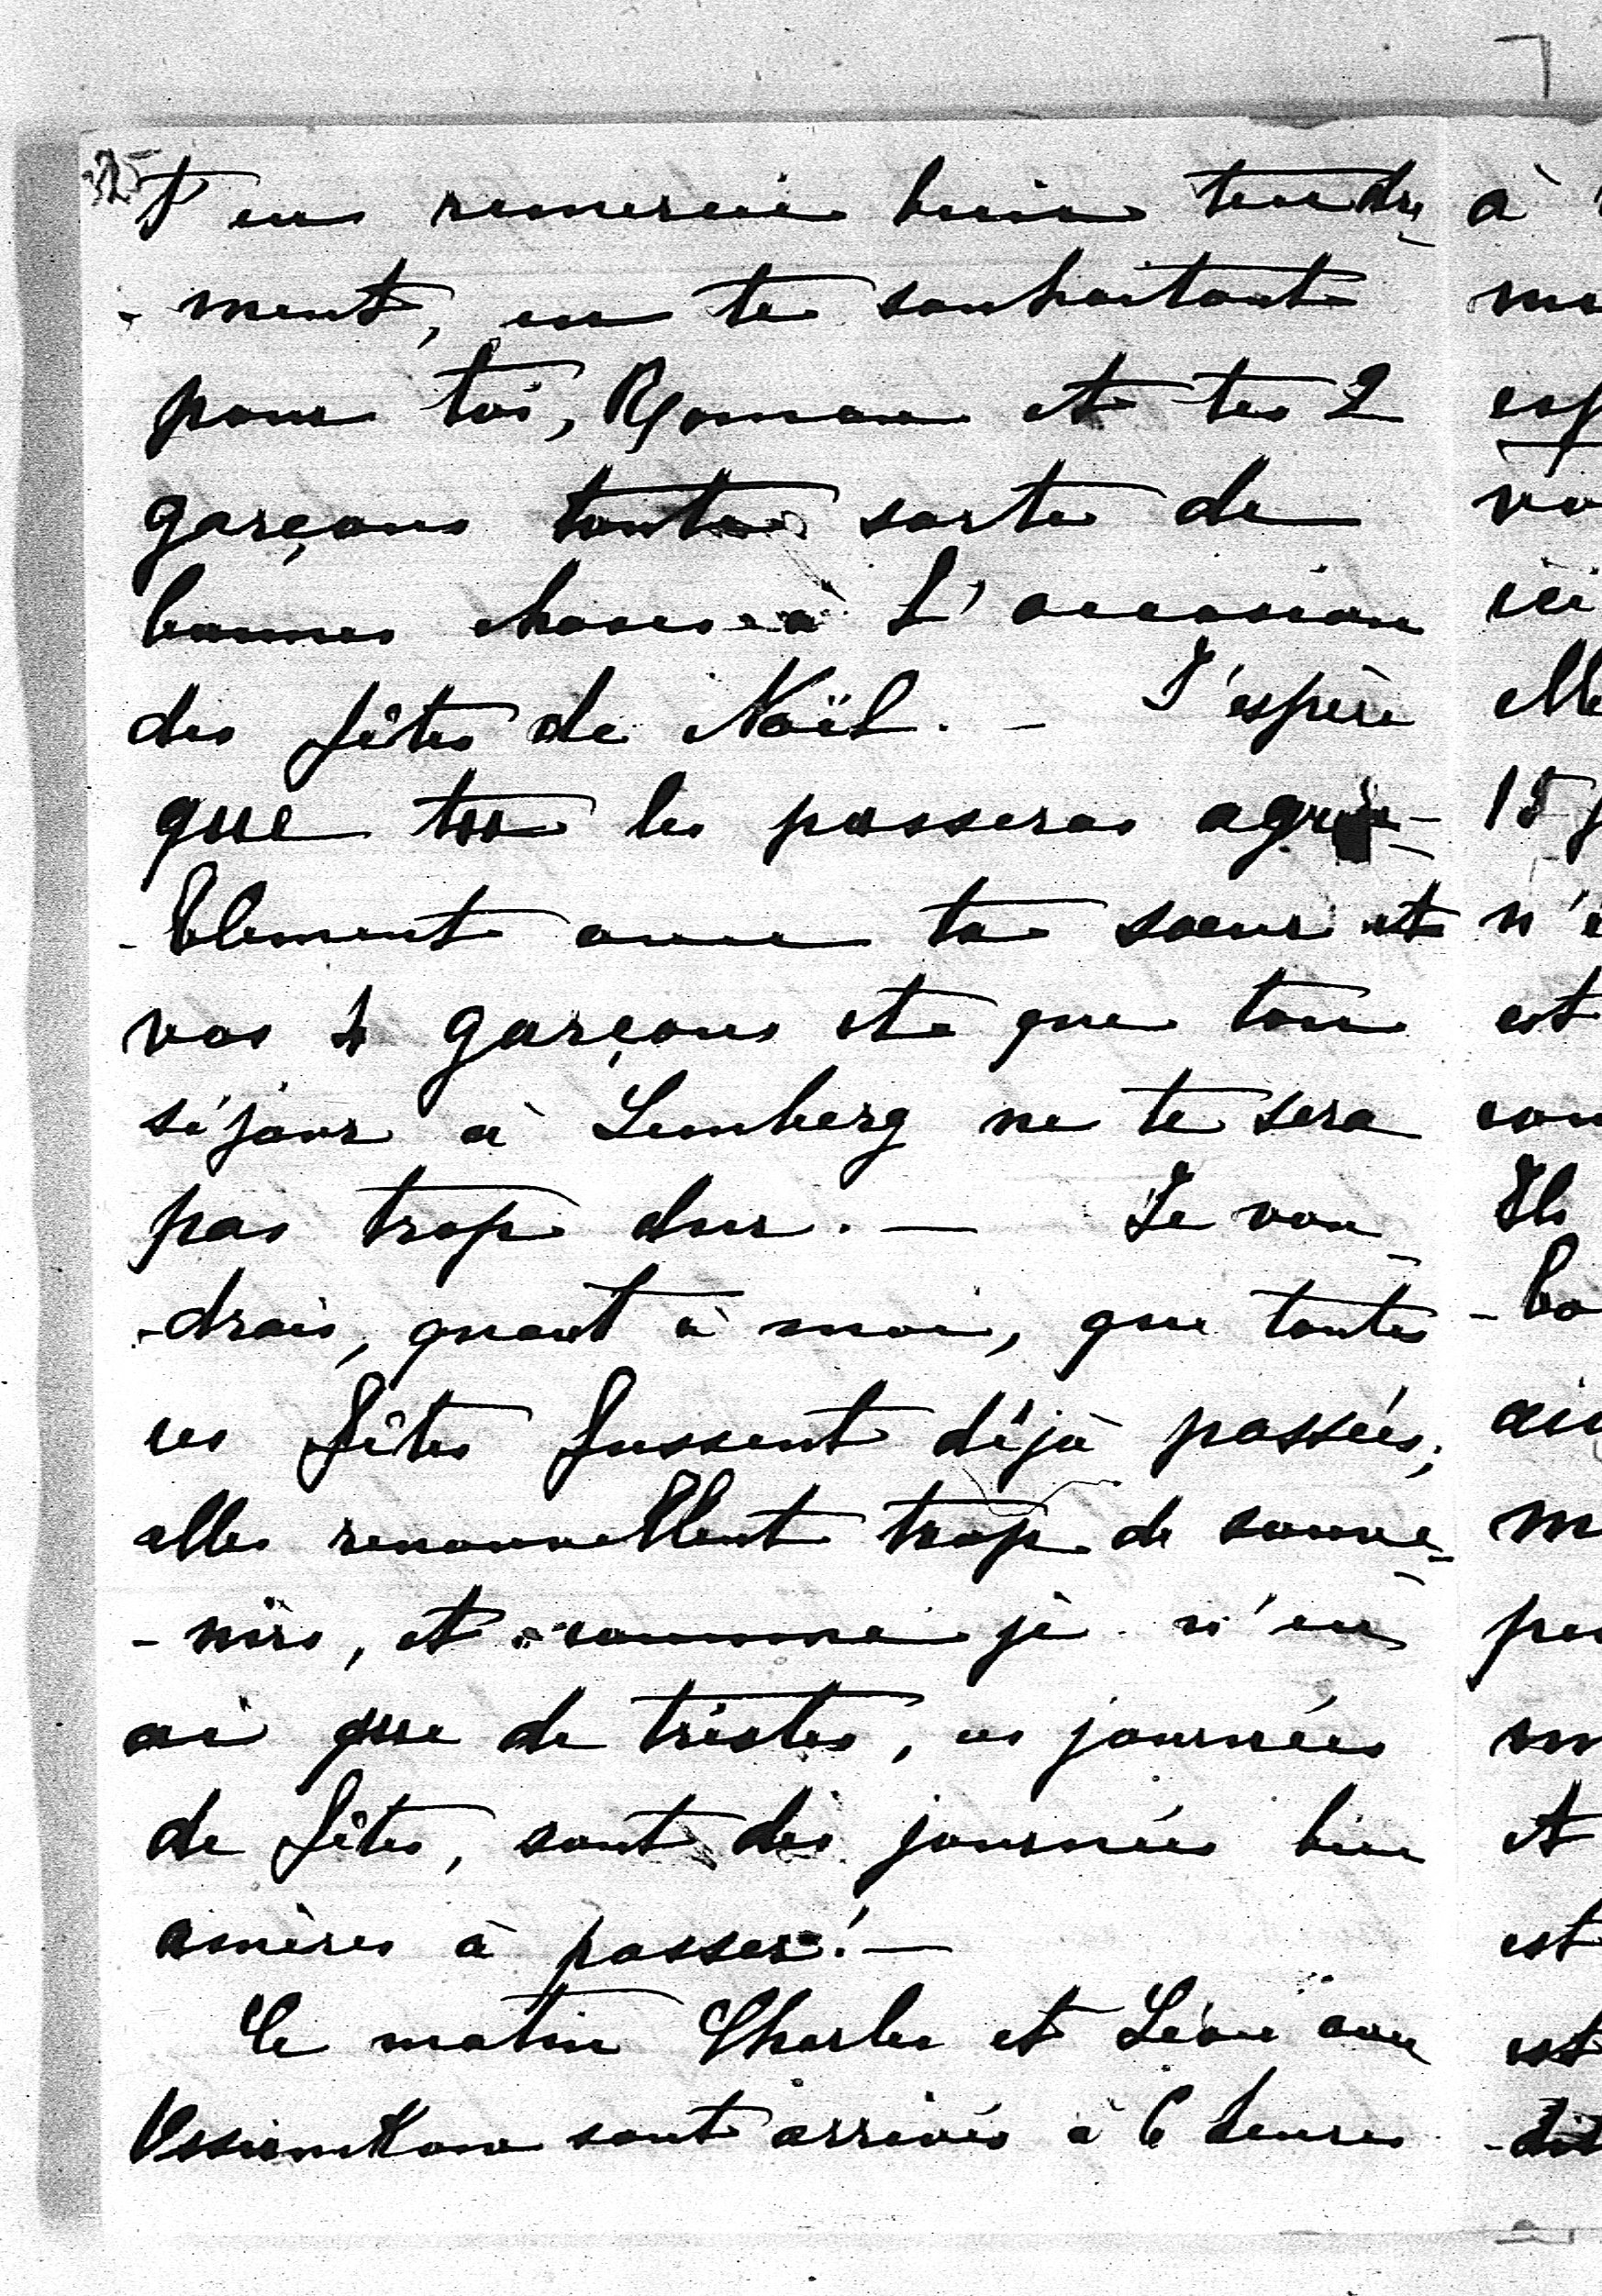 325
T'en remercie bien tendre
-ment, en te souhaitant
pour toi, Roman et tes 2
garçons toutes sortes de
bonnes choses à l'occasion
des fêtes de Noël. - J'espère
que tu les passeras agréa-
-blement avec ta soeur et
vos 4 garçons et que ton
séjour à Lemberg ne te sera
pas trop dur. — Je vou-
-drais, quant à moi, que toutes
ces fêtes fussent déjà passées;
elles renouvellent trop de souve-
-nirs, et comme je n'en
ai que de tristes, ces journées
de fêtes, sont des journées bien
amères à passer! —
Ce matin Charles et Léon avec
sont arrivés à 6 heures
à
esp
vo
ici
elle
15 j
n'é
est
con
Ils
-bo
m
et
est
est